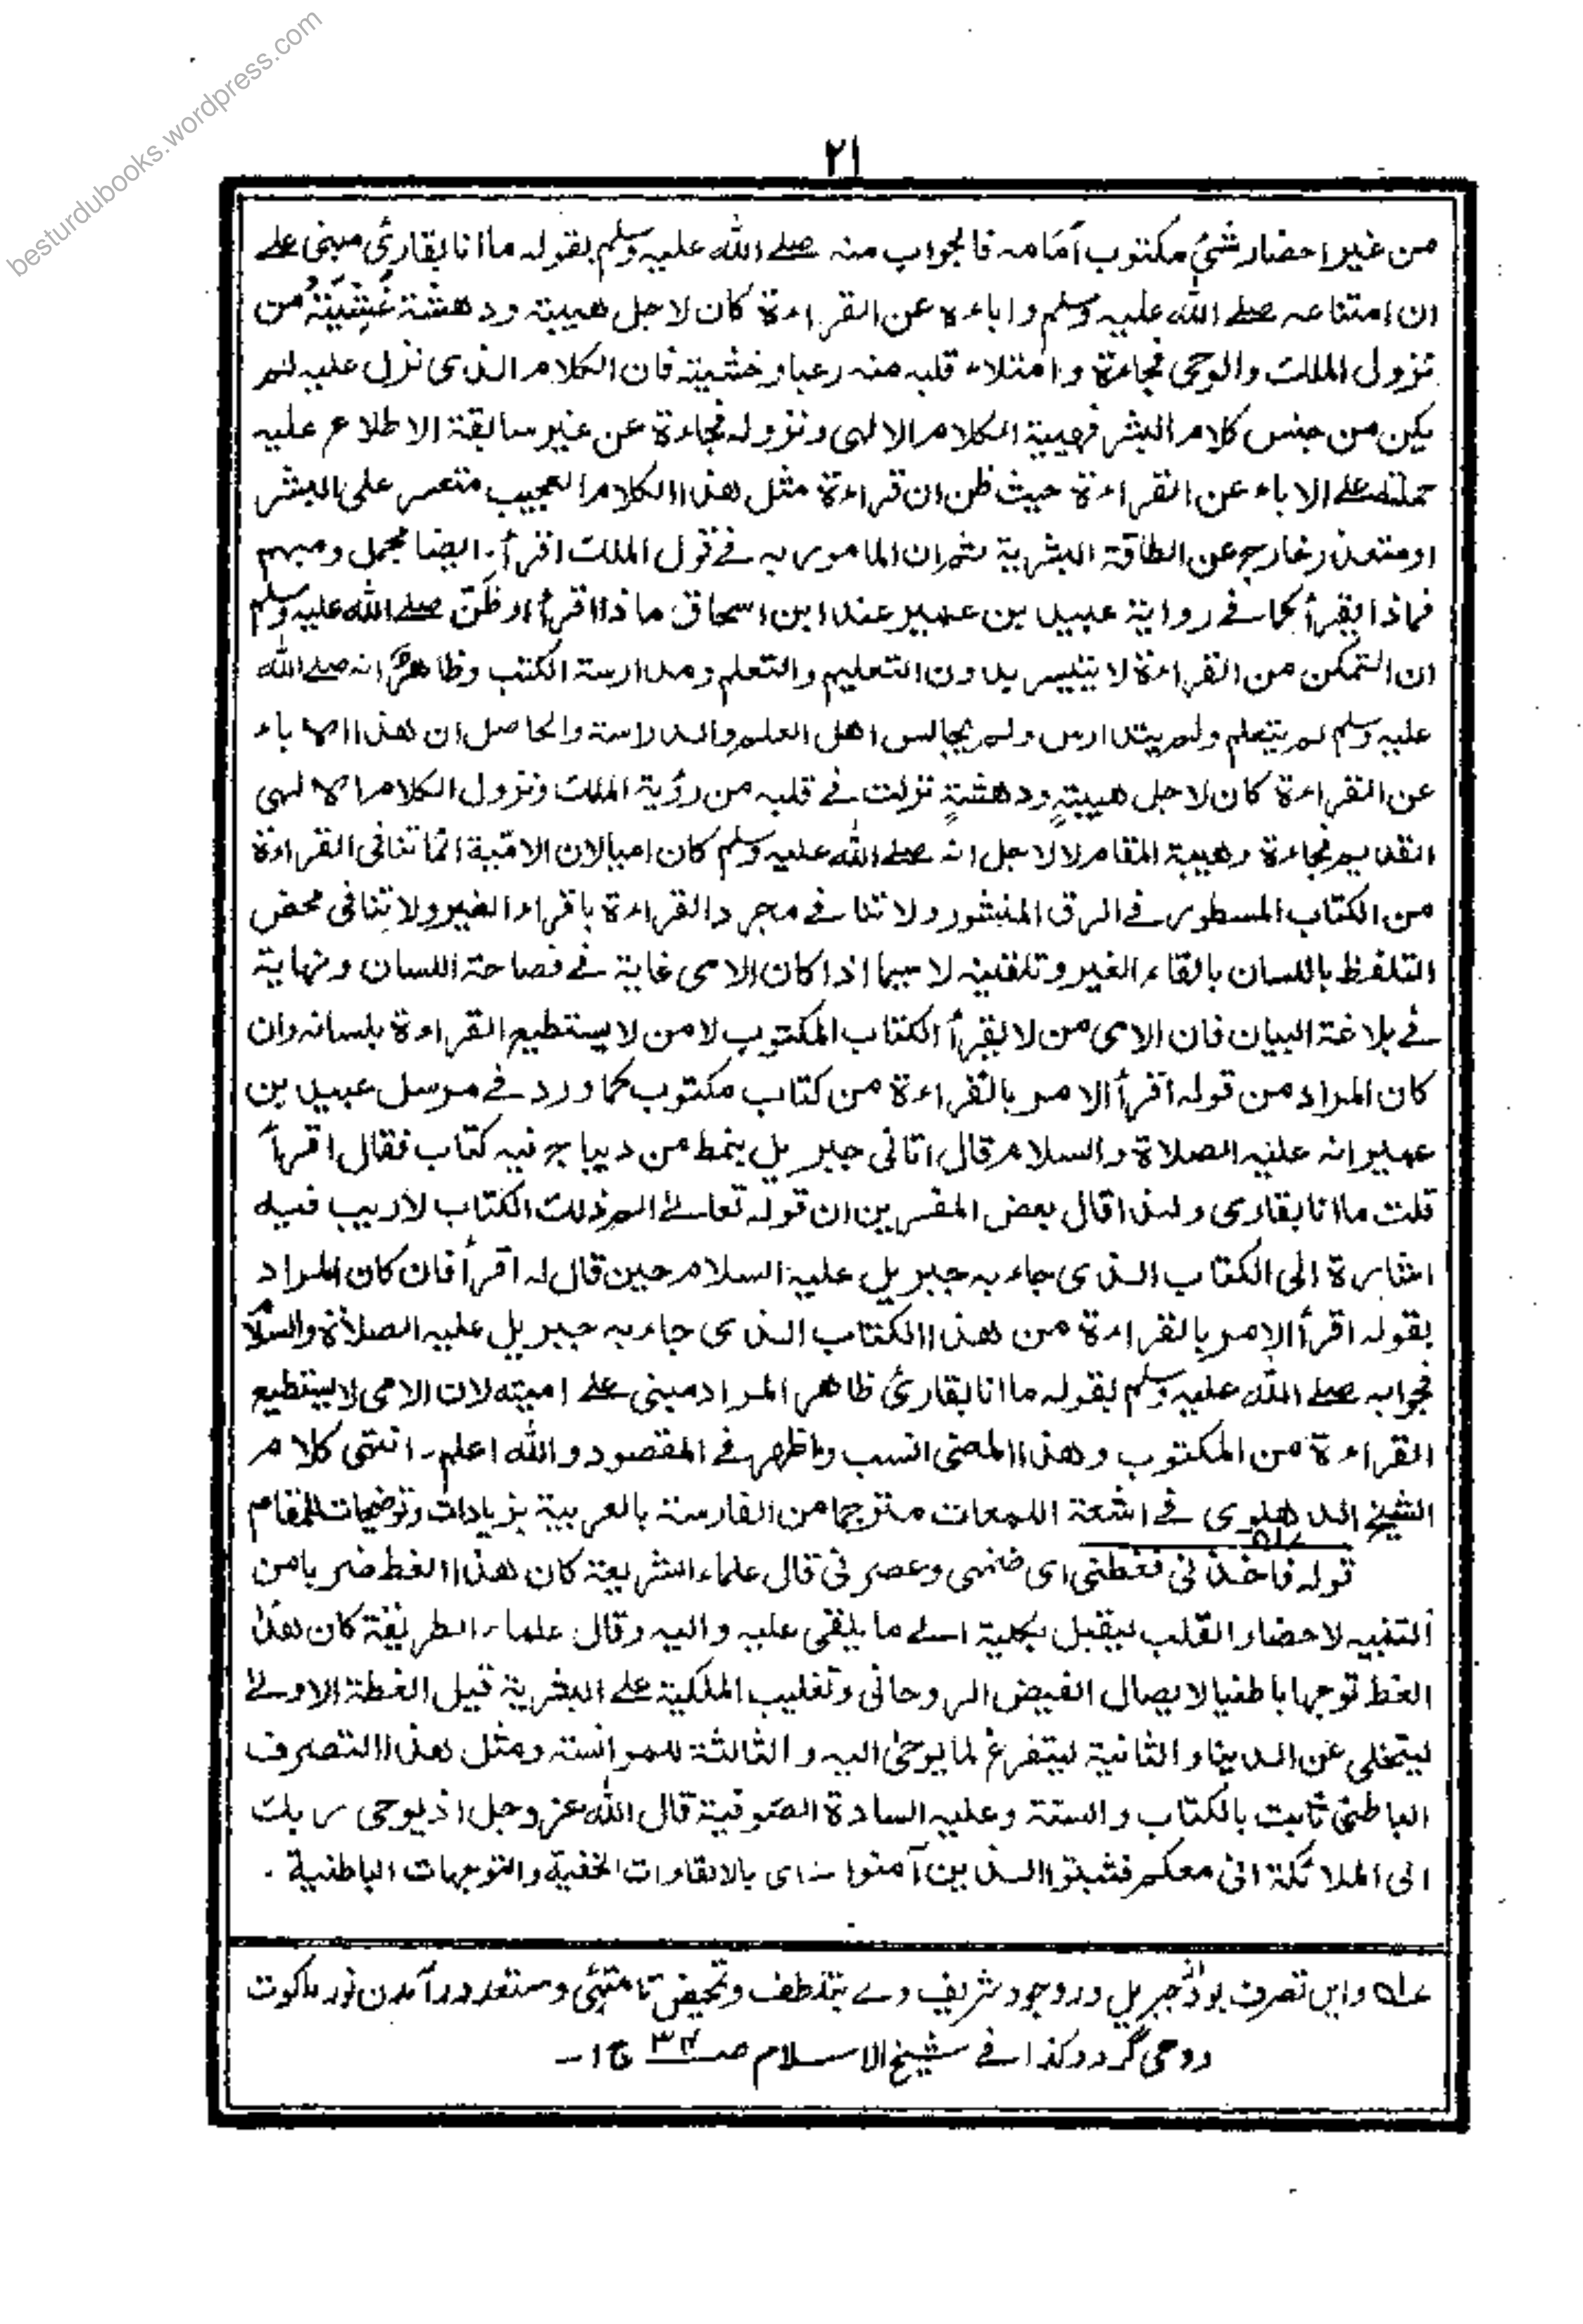 besturdubooks.wordpress.com
٢١
من غير احضار شئ مكتوب أمامه فالجواب منه صلے الله عليه وسلم بقوله ما انا بقارئ مبنى علے
ان امتناعه صلے الله عليه وسلم واباءه عن القراءة كان لاجل هيبة ودهشة غَشِيَتْهُ من
نزول الملك والوحى فجاءة وامتلاء قلبه منه رعبا وخشية فان الكلام الذى نزل عليه لم
يكن من جنس كلام البشر فهيبة الكلام الالهى ونزوله فجاءة عن غير سابقة الاطلاع عليه
حملته علے الاباء عن القراءة حيث ظن ان قراءة مثل هذا الكلام العجيب متعسر على البشر
او متعذر خارج عن الطاقة البشرية ثم ان المامور به فے قول الملك اقرأ۔ ايضا مجمل ومبهم
فماذا يقرأ كما فے رواية عبيد بن عمير عند ابن اسحاق ماذا اقرأ او ظنّ صلے الله عليه وسلم
ان التمكن من القراءة لا يتيسر بدون التعليم والتعلم ومدارسة الكتب وظاهرٌ انه صلے الله
عليه وسلم لم يتعلم ولم يتدارس ولم يجالس اهل العلم والدراسة والحاصل ان هذا الاباء
عن القراءة كان لاجل هيبةٍ ودهشةٍ نزلت فے قلبه من رؤية الملك ونزول الكلام الالهى
القديم فجاءة وهيبة المقام لا لاجل انه صلے الله عليه وسلم كان اميا لان الامّية انما تنافى القراءة
من الكتاب المسطور فے الرق المنشور ولا تنافے مجرد القراءة باقراء الغير ولا تنافى محض
التلفظ باللسان بالقاء الغير وتلقينه لا سيما اذا كان الامى غاية فے فصاحة اللسان ونهاية
فے بلاغة البيان فان الامى من لا يقرأ الكتاب المكتوب لا من لا يستطيع القراءة بلسانه وان
كان المراد من قوله اقرأ الامر بالقراءة من كتاب مكتوب كما ورد فے مرسل عبيد بن
عمير انه عليه الصلاة والسلام قال اتانى جبريل بنمط من ديباج فيه كتاب فقال اقرأ
قلت ما انا بقارى ولذا قال بعض المفسرين ان قوله تعالےٰ الم ذلك الكتاب لا ريب فيه
اشارة الى الكتاب الذى جاء به جبريل عليه السلام حين قال له اقرأ فان كان المراد
بقوله اقرأ الامر بالقراءة من هذا الكتاب الذى جاء به جبريل عليه الصلاة والسلام
فجوابه صلے الله عليه وسلم بقوله ما انا بقارئ ظاهر المراد مبنى علے اميته لان الامى لا يستطيع
القراءة من المكتوب وهذا المعنى انسب واظهر فے المقصود والله اعلم۔ انتهى كلام
الشيخ الدهلوى فے اشعة اللمعات مترجما من الفارسة بالعربية بزيادات وتوضيحات للمقام
قوله فاخذنى فغطنى اى ضمنى وعصرنى قال علماء الشريعة كان هذا الغط ضربا من
التنبيه لاحضار القلب ليقبل بكلية الے ما يلقى عليه واليه وقال علماء الطريقة كان هذا
الغط توجها باطنيا لايصال الفيض الروحانى وتغليب الملكية علے البشرية قيل الغطة الاولےٰ
ليتخلى عن الدنيا والثانية ليتفرغ لما يوحىٰ اليه والثالثة للموانسة ومثل هذا التصرف
الباطنى ثابت بالكتاب والسنة وعليه السادة الصوفية قال الله عز وجل اذ يوحى ربك
الى الملائكة انى معكم فثبتوا الذين آمنوا اى بالالقاءات الخفية والتوجهات الباطنية ۔
عـ۵ واين تصرف بود از جبريل در وجود شريف وے بتلطف و تا متهئ و مستعد در آمدن نور ملكوت
ووحى گردد كذا فے شيخ الاسلام صـ ٣٣ ج ١ــ